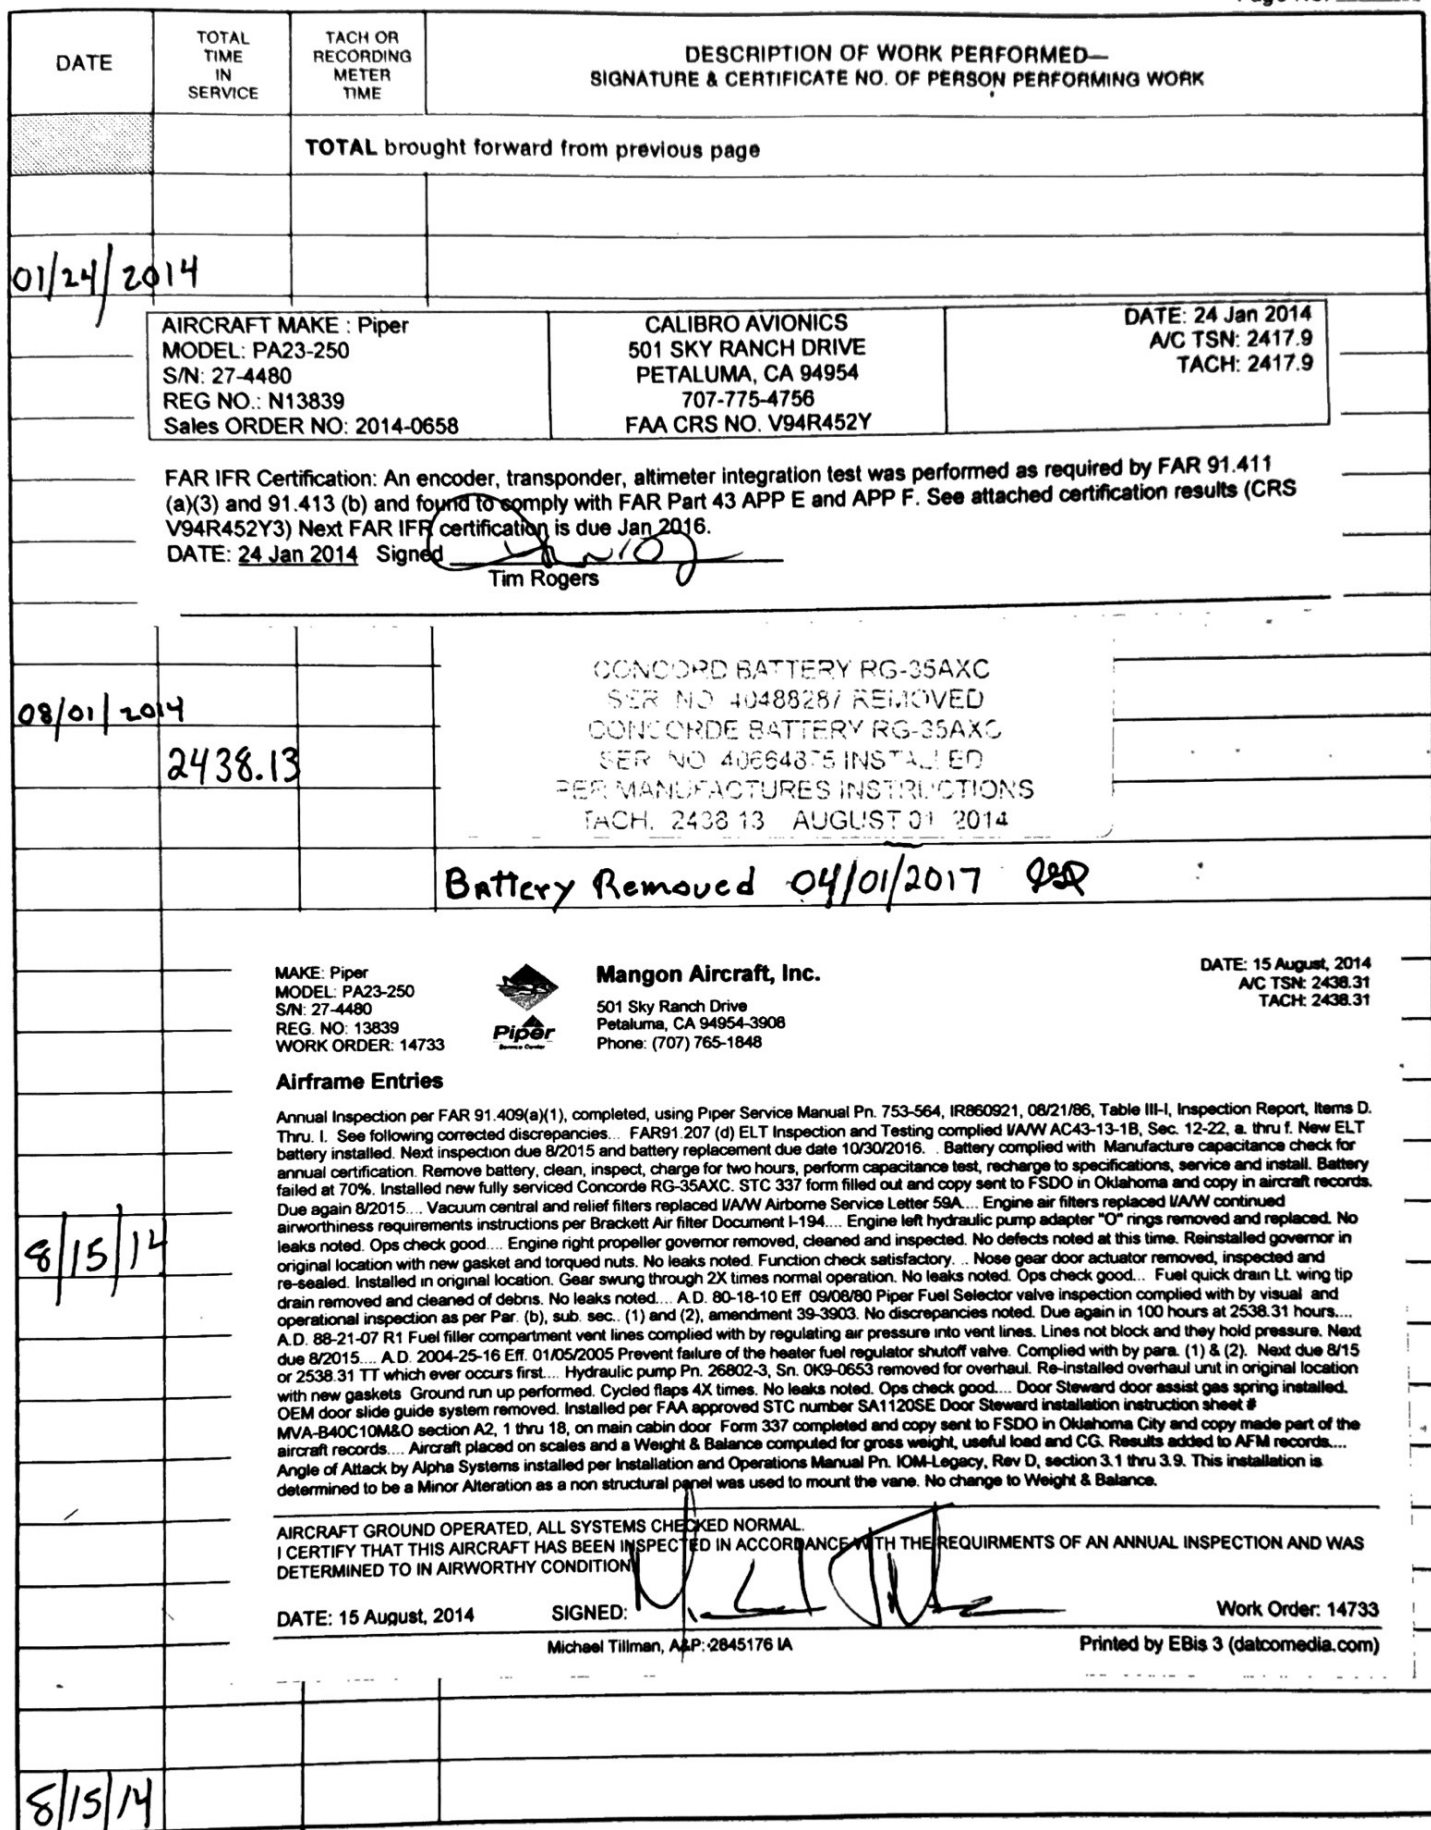 Page No.
DATE
TOTAL
TIME
IN
SERVICE
TACH OR
RECORDING
METER
TIME
DESCRIPTION OF WORK PERFORMED—
SIGNATURE & CERTIFICATE NO. OF PERSON PERFORMING WORK
TOTAL brought forward from previous page
01/24/2014
AIRCRAFT MAKE : Piper
MODEL: PA23-250
S/N: 27-4480
REG NO.: N13839
Sales ORDER NO: 2014-0658
CALIBRO AVIONICS
501 SKY RANCH DRIVE
PETALUMA, CA 94954
707-775-4756
FAA CRS NO. V94R452Y
DATE: 24 Jan 2014
A/C TSN: 2417.9
TACH: 2417.9
FAR IFR Certification: An encoder, transponder, altimeter integration test was performed as required by FAR 91.411
(a)(3) and 91.413 (b) and found to comply with FAR Part 43 APP E and APP F. See attached certification results (CRS
V94R452Y3) Next FAR IFR certification is due Jan 2016.
DATE: 24 Jan 2014 Signed
Tim Rogers
08/01/2014
2438.13
CONCORD BATTERY RG-35AXC
SER NO 40488287 REMOVED
CONCORDE BATTERY RG-35AXC
SER NO 40664875 INSTALLED
PER MANUFACTURES INSTRUCTIONS
TACH. 2438 13 AUGUST 01 2014
Battery Removed 04/01/2017
MAKE: Piper
MODEL: PA23-250
S/N: 27-4480
REG. NO: 13839
WORK ORDER: 14733
Piper
Service Center
Mangon Aircraft, Inc.
501 Sky Ranch Drive
Petaluma, CA 94954-3908
Phone: (707) 765-1848
DATE: 15 August, 2014
A/C TSN: 2438.31
TACH: 2438.31
Airframe Entries
Annual Inspection per FAR 91.409(a)(1), completed, using Piper Service Manual Pn. 753-564, IR860921, 08/21/86, Table III-I, Inspection Report, Items D.
Thru. I. See following corrected discrepancies... FAR91.207 (d) ELT Inspection and Testing complied I/A/W AC43-13-1B, Sec. 12-22, a. thru f. New ELT
battery installed. Next inspection due 8/2015 and battery replacement due date 10/30/2016. . Battery complied with Manufacture capacitance check for
annual certification. Remove battery, clean, inspect, charge for two hours, perform capacitance test, recharge to specifications, service and install. Battery
failed at 70%. Installed new fully serviced Concorde RG-35AXC. STC 337 form filled out and copy sent to FSDO in Oklahoma and copy in aircraft records.
Due again 8/2015.... Vacuum central and relief filters replaced I/A/W Airborne Service Letter 59A.... Engine air filters replaced I/A/W continued
airworthiness requirements instructions per Brackett Air filter Document I-194.... Engine left hydraulic pump adapter "O" rings removed and replaced. No
leaks noted. Ops check good.... Engine right propeller governor removed, cleaned and inspected. No defects noted at this time. Reinstalled governor in
original location with new gasket and torqued nuts. No leaks noted. Function check satisfactory. .. Nose gear door actuator removed, inspected and
re-sealed. Installed in original location. Gear swung through 2X times normal operation. No leaks noted. Ops check good... Fuel quick drain Lt. wing tip
drain removed and cleaned of debris. No leaks noted.... A.D. 80-18-10 Eff 09/08/80 Piper Fuel Selector valve inspection complied with by visual and
operational inspection as per Par. (b), sub. sec.. (1) and (2), amendment 39-3903. No discrepancies noted. Due again in 100 hours at 2538.31 hours....
A.D. 88-21-07 R1 Fuel filler compartment vent lines complied with by regulating air pressure into vent lines. Lines not block and they hold pressure. Next
due 8/2015.... A.D. 2004-25-16 Eff. 01/05/2005 Prevent failure of the heater fuel regulator shutoff valve. Complied with by para. (1) & (2). Next due 8/15
or 2538.31 TT which ever occurs first.... Hydraulic pump Pn. 26802-3, Sn. 0K9-0653 removed for overhaul. Re-installed overhaul unit in original location
with new gaskets Ground run up performed. Cycled flaps 4X times. No leaks noted. Ops check good.... Door Steward door assist gas spring installed.
OEM door slide guide system removed. Installed per FAA approved STC number SA1120SE Door Steward installation instruction sheet #
MVA-B40C10M&O section A2, 1 thru 18, on main cabin door Form 337 completed and copy sent to FSDO in Oklahoma City and copy made part of the
aircraft records.... Aircraft placed on scales and a Weight & Balance computed for gross weight, useful load and CG. Results added to AFM records....
Angle of Attack by Alpha Systems installed per Installation and Operations Manual Pn. IOM-Legacy, Rev D, section 3.1 thru 3.9. This installation is
determined to be a Minor Alteration as a non structural panel was used to mount the vane. No change to Weight & Balance.
8/15/14
AIRCRAFT GROUND OPERATED, ALL SYSTEMS CHECKED NORMAL.
I CERTIFY THAT THIS AIRCRAFT HAS BEEN INSPECTED IN ACCORDANCE WITH THE REQUIRMENTS OF AN ANNUAL INSPECTION AND WAS
DETERMINED TO IN AIRWORTHY CONDITION
DATE: 15 August, 2014
SIGNED:
Work Order: 14733
Michael Tillman, A&P: 2845176 IA
Printed by EBis 3 (datcomedia.com)
8/15/14